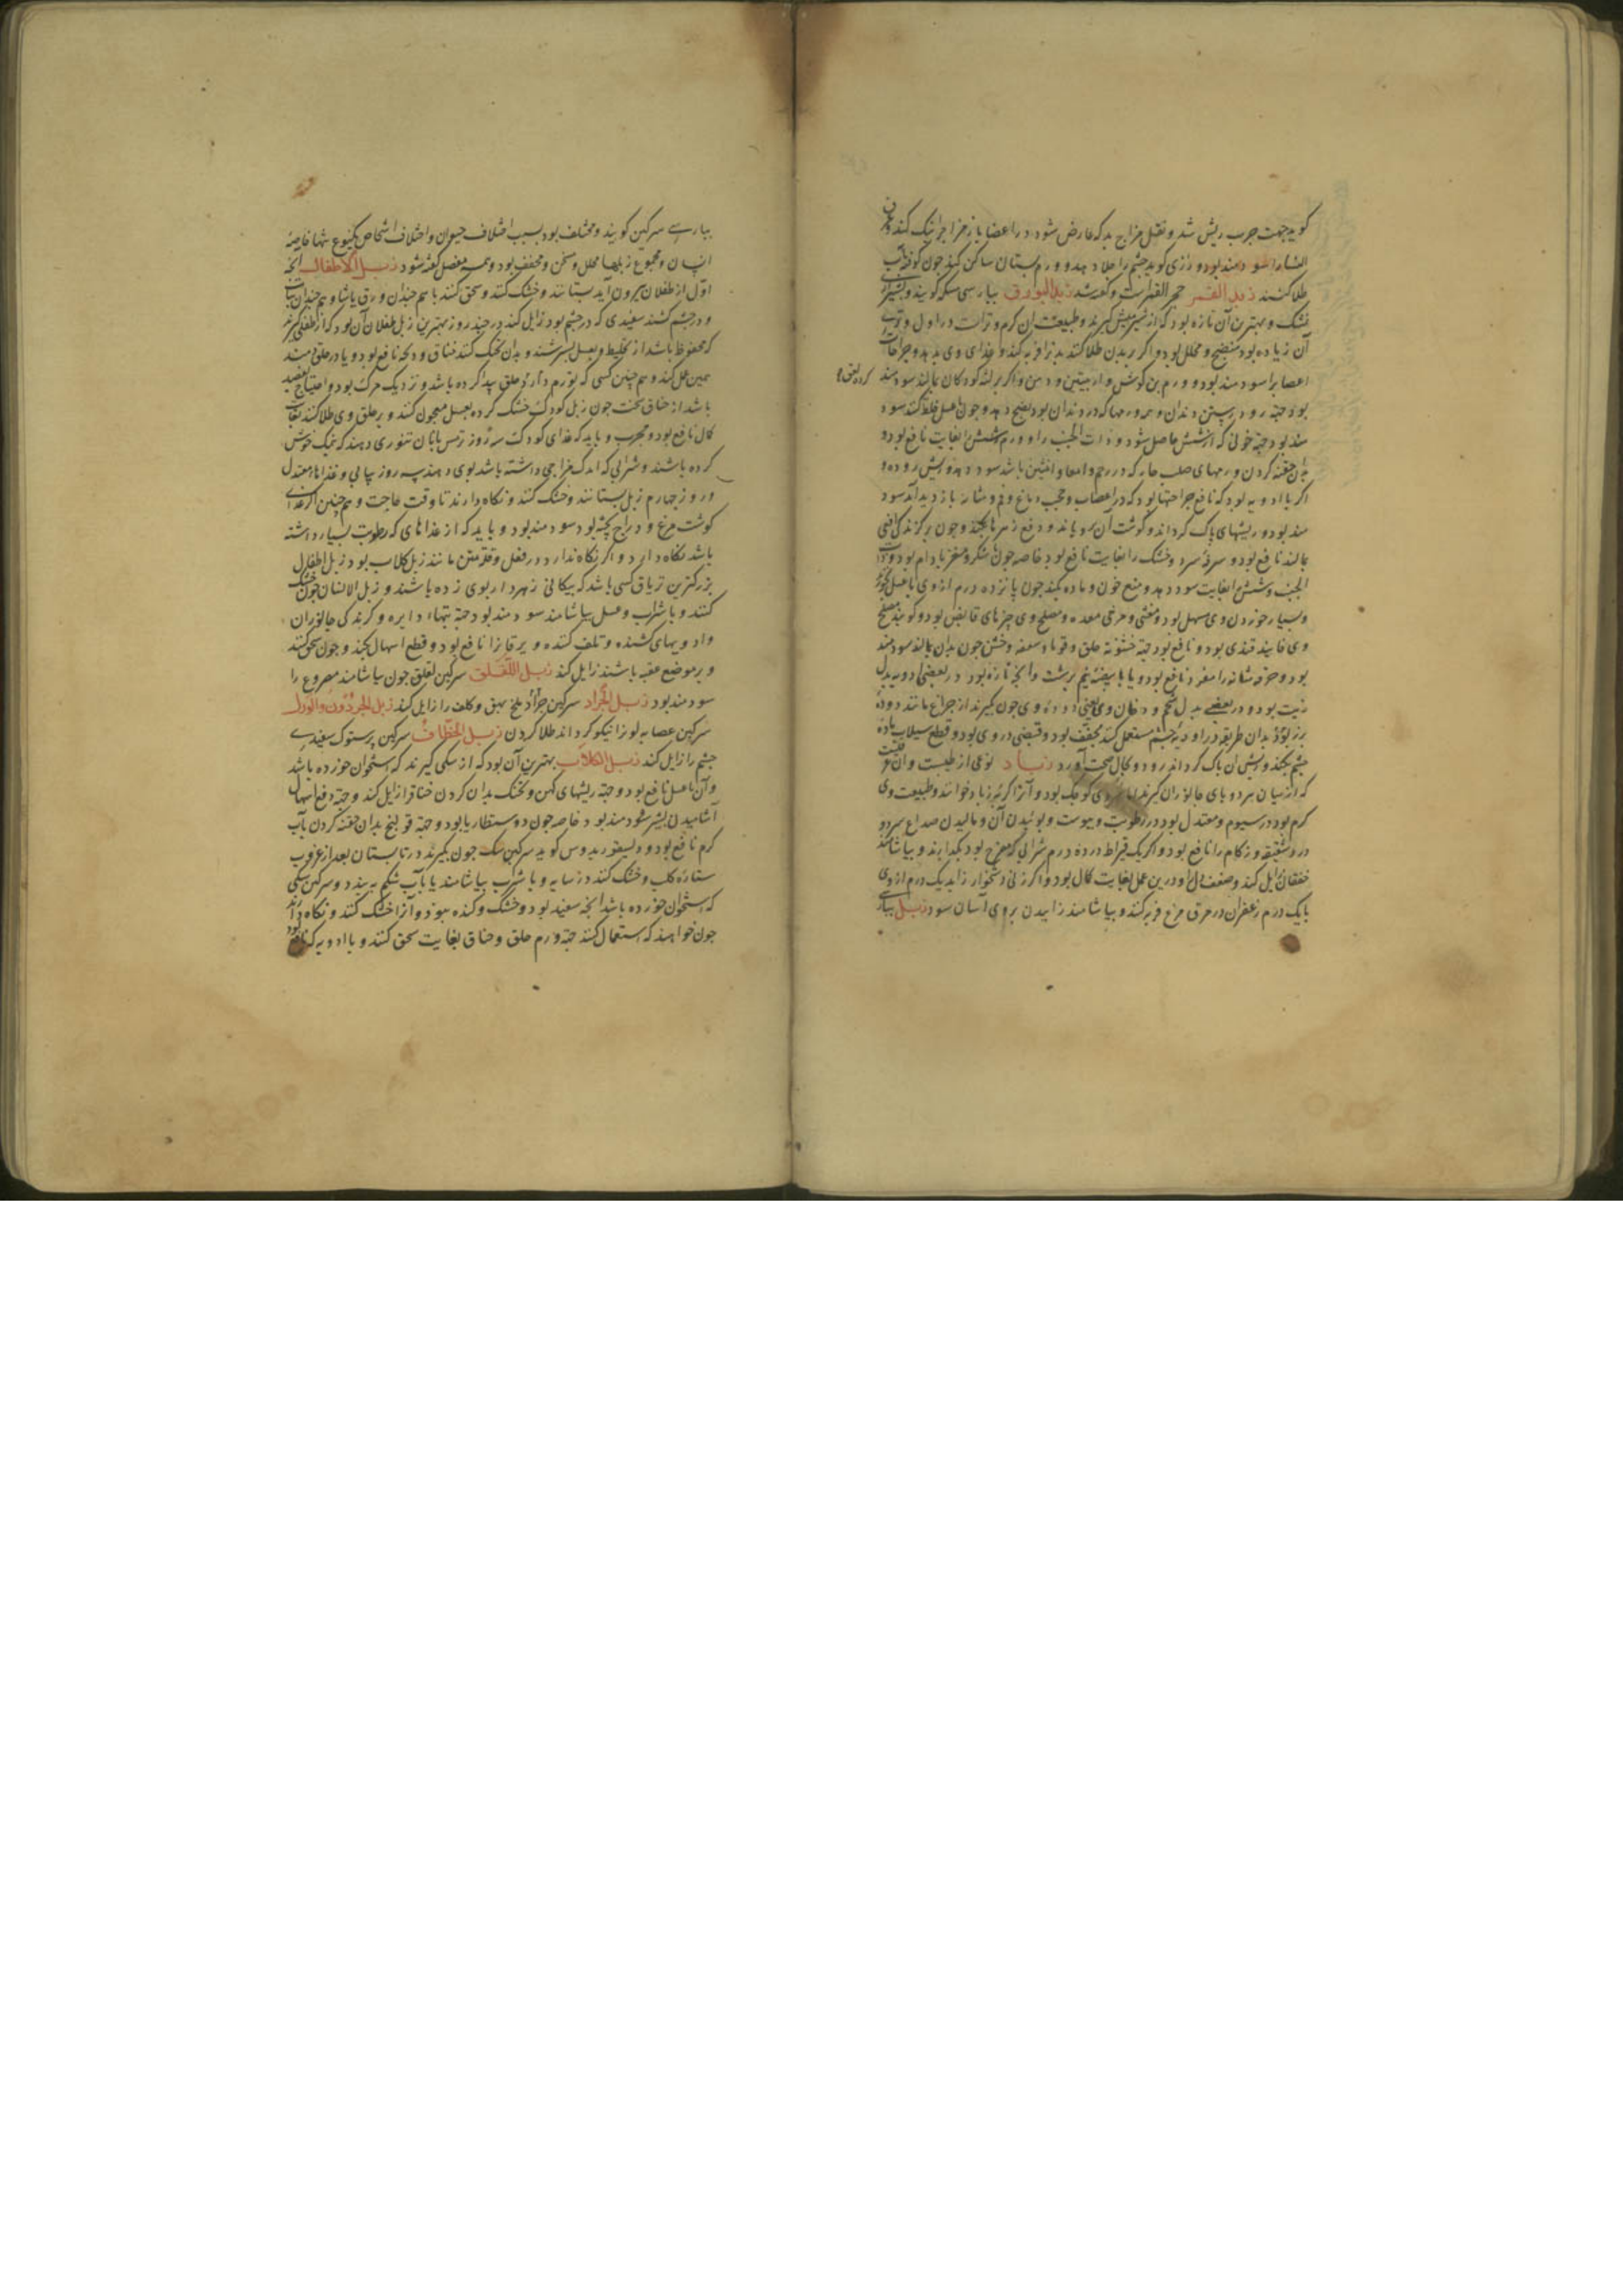 کوید جهت جرب ریش شد و نقل مزاج بد که عارض شود در اعضا باز مزاج نیک کند
النسا را سود مند بود و رازی کوید چشم را جلا دهد و ورم پستان ساکن کند چون کوفته بآب
طلا کنند زبد القمر حجر القمر است و گفته شد زبد البورق بپارسی مسکه کویند و
خشک و بهترین آن تازه بود که از شیر میش گیرند و طبیعت آن گرم و تر است در اول و تری
آن زیاده بود منضج و محلل بود و اگر بر بدن طلا کنند بدن را فربه کند و غذای وی بدهد و جراحات
اعصاب را سود مند بود و ورم بن گوش و اربیتین و دهن و اگر بر لثه کودکان بمالند سود مند
بود جهة رود رستن دندان و همه ورمها که در دندان بود نضج دهد و چون با عسل خلط کنند سود
مند بود جهة خونی که از شش حاصل شود و ذات الجنب را و ورم شش بغایت نافع بود و
بدان حقنه کردن ورمهای صلب حار که در رحم و امعا و انثیین باشد سود دهد و ریش روده و
اگر با ادویه بود که نافع جراحتها بود که در اعصاب و حجب دماغ و فم مثانه بازدید آمد سود
مند بود و ریشهای پاک گرداند و گوشت آن برویاند و دفع زهرها بکند و چون بر گزندگی افعی
بمالند نافع بود و سرفه سرد و خشک را بغایت نافع بود خاصه چون با شکر و مغز بادام بود و ذات
الجنب و شش را بغایت سود دهد و منع خون و ماده بکند چون پانزده درم از وی با عسل
و بسیار خوردن وی مسهل بود و مغثی و مرخی معده و مصلح وی چیزهای قابض بود و گویند مصلح
وی فانید قندی بود و نافع بود جهة خشونة حلق و قوبا و سعفه و خشن چون بدان بمالند سود مند
بود و حرقه مثانه را مفرد نافع بود و یا با بیضه نیم برشت و آنچه تازه بود در بعضی ادویه بدل
زیت بود و در بعضی بدل شحم و دخان وی یعنی دوده وی چون گیرند از چراغ مانند دوده
بزر بود و بدان طریقه در ادویه چشم مستعمل کنند مجفف بود و قبضی در وی بود و قطع سیلاب ماده
چشم بکند و ریش آن پاک گرداند زود و بحال صحت آورد زباد نوعی از طیبست و آن
که از میان هر دو پای جانوران گیرند کوچک بود و آنرا گربه زباد خوانند و طبیعت وی
گرم بود در سیوم و معتدل بود در رطوبت و یبوست و بوئیدن آن و مالیدن صداع سرد و
درد شقیقه و زکام را نافع بود و اگر یک قیراط در ده درم شرابی که مفرح بود بگدازند و بیاشامند
خفقان زایل کند و ضعف دل و درین عمل بغایت کمال بود و اگر زنی دشخوار زاید یک درم از وی
با یک درم زعفران در مرق مرغ فربه کنند و بیاشامند زاییدن بر وی آسان شود زبل
بپارسی سرگین گویند و مختلف بود بسبب اختلاف حیوان و اختلاف اشخاص یکنوع
انسان و مجموع زبلها محلل و مسخن و مجفف بود و همه مفصل گفته شود زبل الاطفال آنچه
اول از طفلان بیرون آید بستانند و خشک کنند و سحق کنند با هم چندان ورق
و در چشم کشند سفیدی که در چشم بود زایل کند در چند روز بهترین زبل طفلان آن بود که از طفلی گیرند
که محفوظ باشد از تخلیط و بعسل بسرشند و بدان تحنیک کنند خناق و ذبحه نافع بود و یا در حلق دمند
همین عمل کند و هم چنین کسی که بورم حار حلق پیدا کرده باشد و نزدیک مرگ بود و احتیاج بفصد
باشد از خناق سخت چون زبل کودک خشک کرده بعسل معجون کنند و بر حلق وی طلا کنند بغایت
کمال نافع بود و مجرب و باید که غذای کودک سه روز ترمس با نان تنوری دهند که نمک خوش
کرده باشند و شرابی که اندک مزاجی داشته باشد بوی دهند سه روز پیاپی و غذاها معتدل
و روز چهارم زبل بستانند و خشک کنند و نگاه دارند تا وقت حاجت و هم چنین اگر غذای
گوشت مرغ و دراج پخته بود سود مند بود و باید که از غذاهای که رطوبت بسیار داشته
باشد نگاه دارد و اگر نگاه ندارد در فعل و قلت متن مانند زبل کلاب بود زبل اطفال
بزرگترین تریاق کسی باشد که پیکانی زهردار بوی زده باشند و زبل الانسان چون خشک
کنند و با شراب و عسل بیاشامند سود مند بود جهة تبهاء دایره و گزندگی جانوران
و ادویهای کشنده و تلف کننده و یرقان را نافع بود و قطع اسهال بکند و چون سحق کنند
و بر موضع عقبه باشند زایل کند زبل اللقلق سرگین لقلق چون بیاشامند مصروع را
سود مند بود زبل الجراد سرگین جراد ملخ بهق و کلف را زایل کند زبل الحرذون والورل
سرگین عصایه لون را نیکو گرداند طلا کردن زبل الخطاف سرگین پرستوک سفیدی
چشم را زایل کند زبل الکلاب بهترین آن بود که از سگی گیرند که استخوان خورده باشد
و آن با عسل نافع بود و جهة ریشهای کهن و تحنک بدان کردن خناق را زایل کند و جهة دفع اسهال
آشامیدن بشیر سود مند بود خاصه چون دوسنطاریا بود و جهة قولنج بدان حقنه کردن بآب
گرم نافع بود و دیسقوریدوس گوید سرگین سگ چون بگیرند در تابستان بعد از غروب
ستاره کلب و خشک کنند در سایه و با شراب بیاشامند یا بآب شکم ببندد و سرگین سگی
که استخوان خورده باشد آنچه سفید بود و خشک و گنده نبود و آنرا خشک کنند و نگاه دارند
چون خواهند که استعمال کنند جهة ورم حلق و خناق بغایت سحق کنند و با ادویه که نافع بود